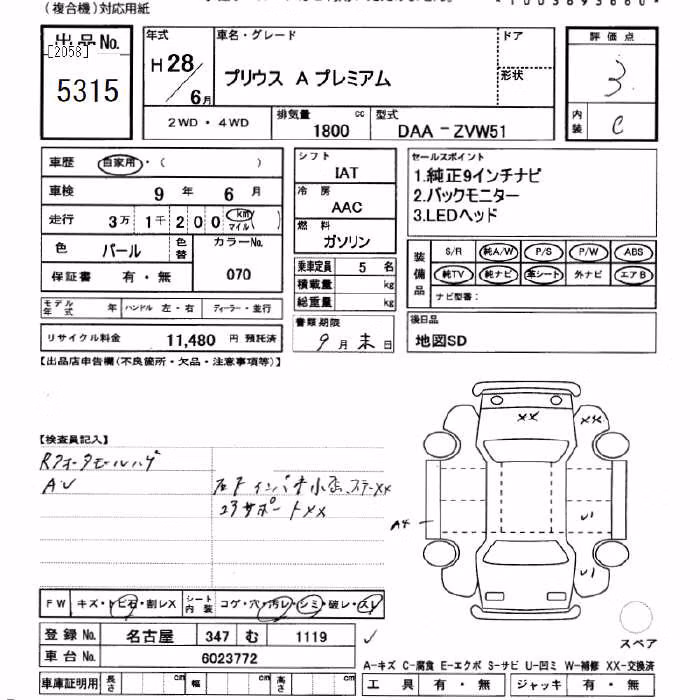 （複合機）対応用紙
出品No.
[2058]
5315
年式
H28/6月
車名・グレード
プリウス A プレミアム
ドア
形状
評価点
3
内装
C
2WD・4WD
排気量
1800 cc
型式
DAA-ZVW51
車歴 自家用・( )
車検 9年 6月
走行 3万1千200 (km マイル)
色 パール
色替
カラーNo.
070
保証書 有・無
モデル年式 年 ハンドル 左・右 ディーラー・並行
リサイクル料金 11,480 円 預託済
シフト
IAT
冷房
AAC
燃料
ガソリン
乗車定員 5 名
積載量 kg
総重量 kg
書類期限
9月末日
セールスポイント
1.純正9インチナビ
2.バックモニター
3.LEDヘッド
装備品
S/R 純A/W P/S P/W ABS
純TV 純ナビ 革シート 外ナビ エアB
ナビ型番：
後日品
地図SD
【出品店申告欄（不良箇所・欠品・注意事項等）】
【検査員記入】
AU
XX
A4
U1
U1
FW キズ・トビ石・割レX
シート内装 コゲ・穴・汚レ・シミ・破レ・スレ
登録No. 名古屋 347 む 1119
車台No. 6023772
車庫証明用 長さ cm 幅 cm 高さ cm
スペア
A-キズ C-腐食 E-エクボ S-サビ U-凹ミ W-補修 XX-交換済
工具 有・無 ジャッキ 有・無